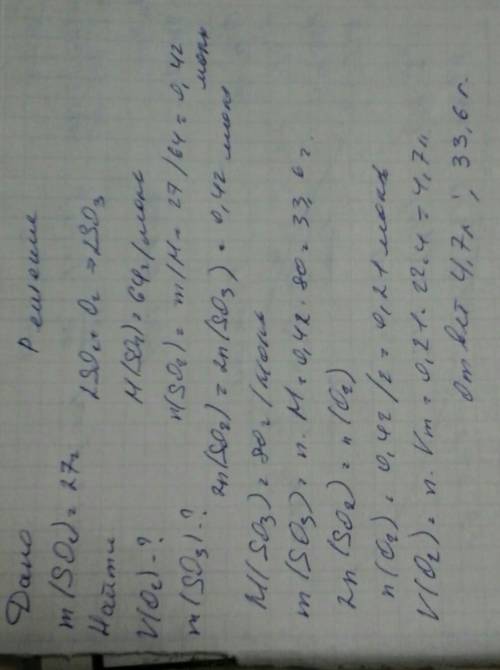 Дано Решение
m(SO2) = 27г
Найти 2SO2 + O2 → 2SO3
V(O2) - ? M(SO2) = 64г/моль
m(SO3) - ? n(SO2) = m/M = 27/64 = 0,42 моль
2n(SO2) = 2n(SO3) = 0,42 моль
M(SO3) = 80г/моль
m(SO3) = n·M = 0,42·80 = 33,6г.
2n(SO2) = n(O2)
n(O2) = 0,42/2 = 0,21моль
V(O2) = n·Vm = 0,21·22.4 = 4,7л
Ответ 4,7л; 33,6г.